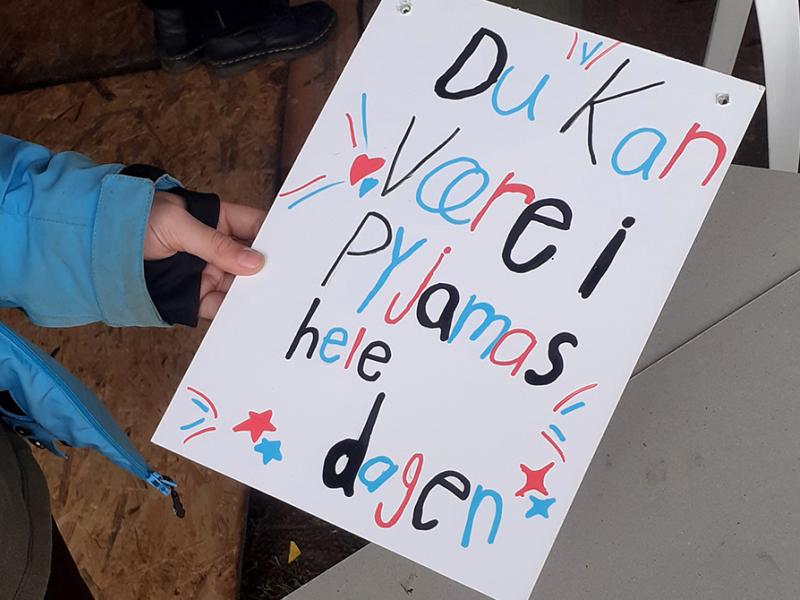 Du Kan
Være i
PYjamas
hele
dagen